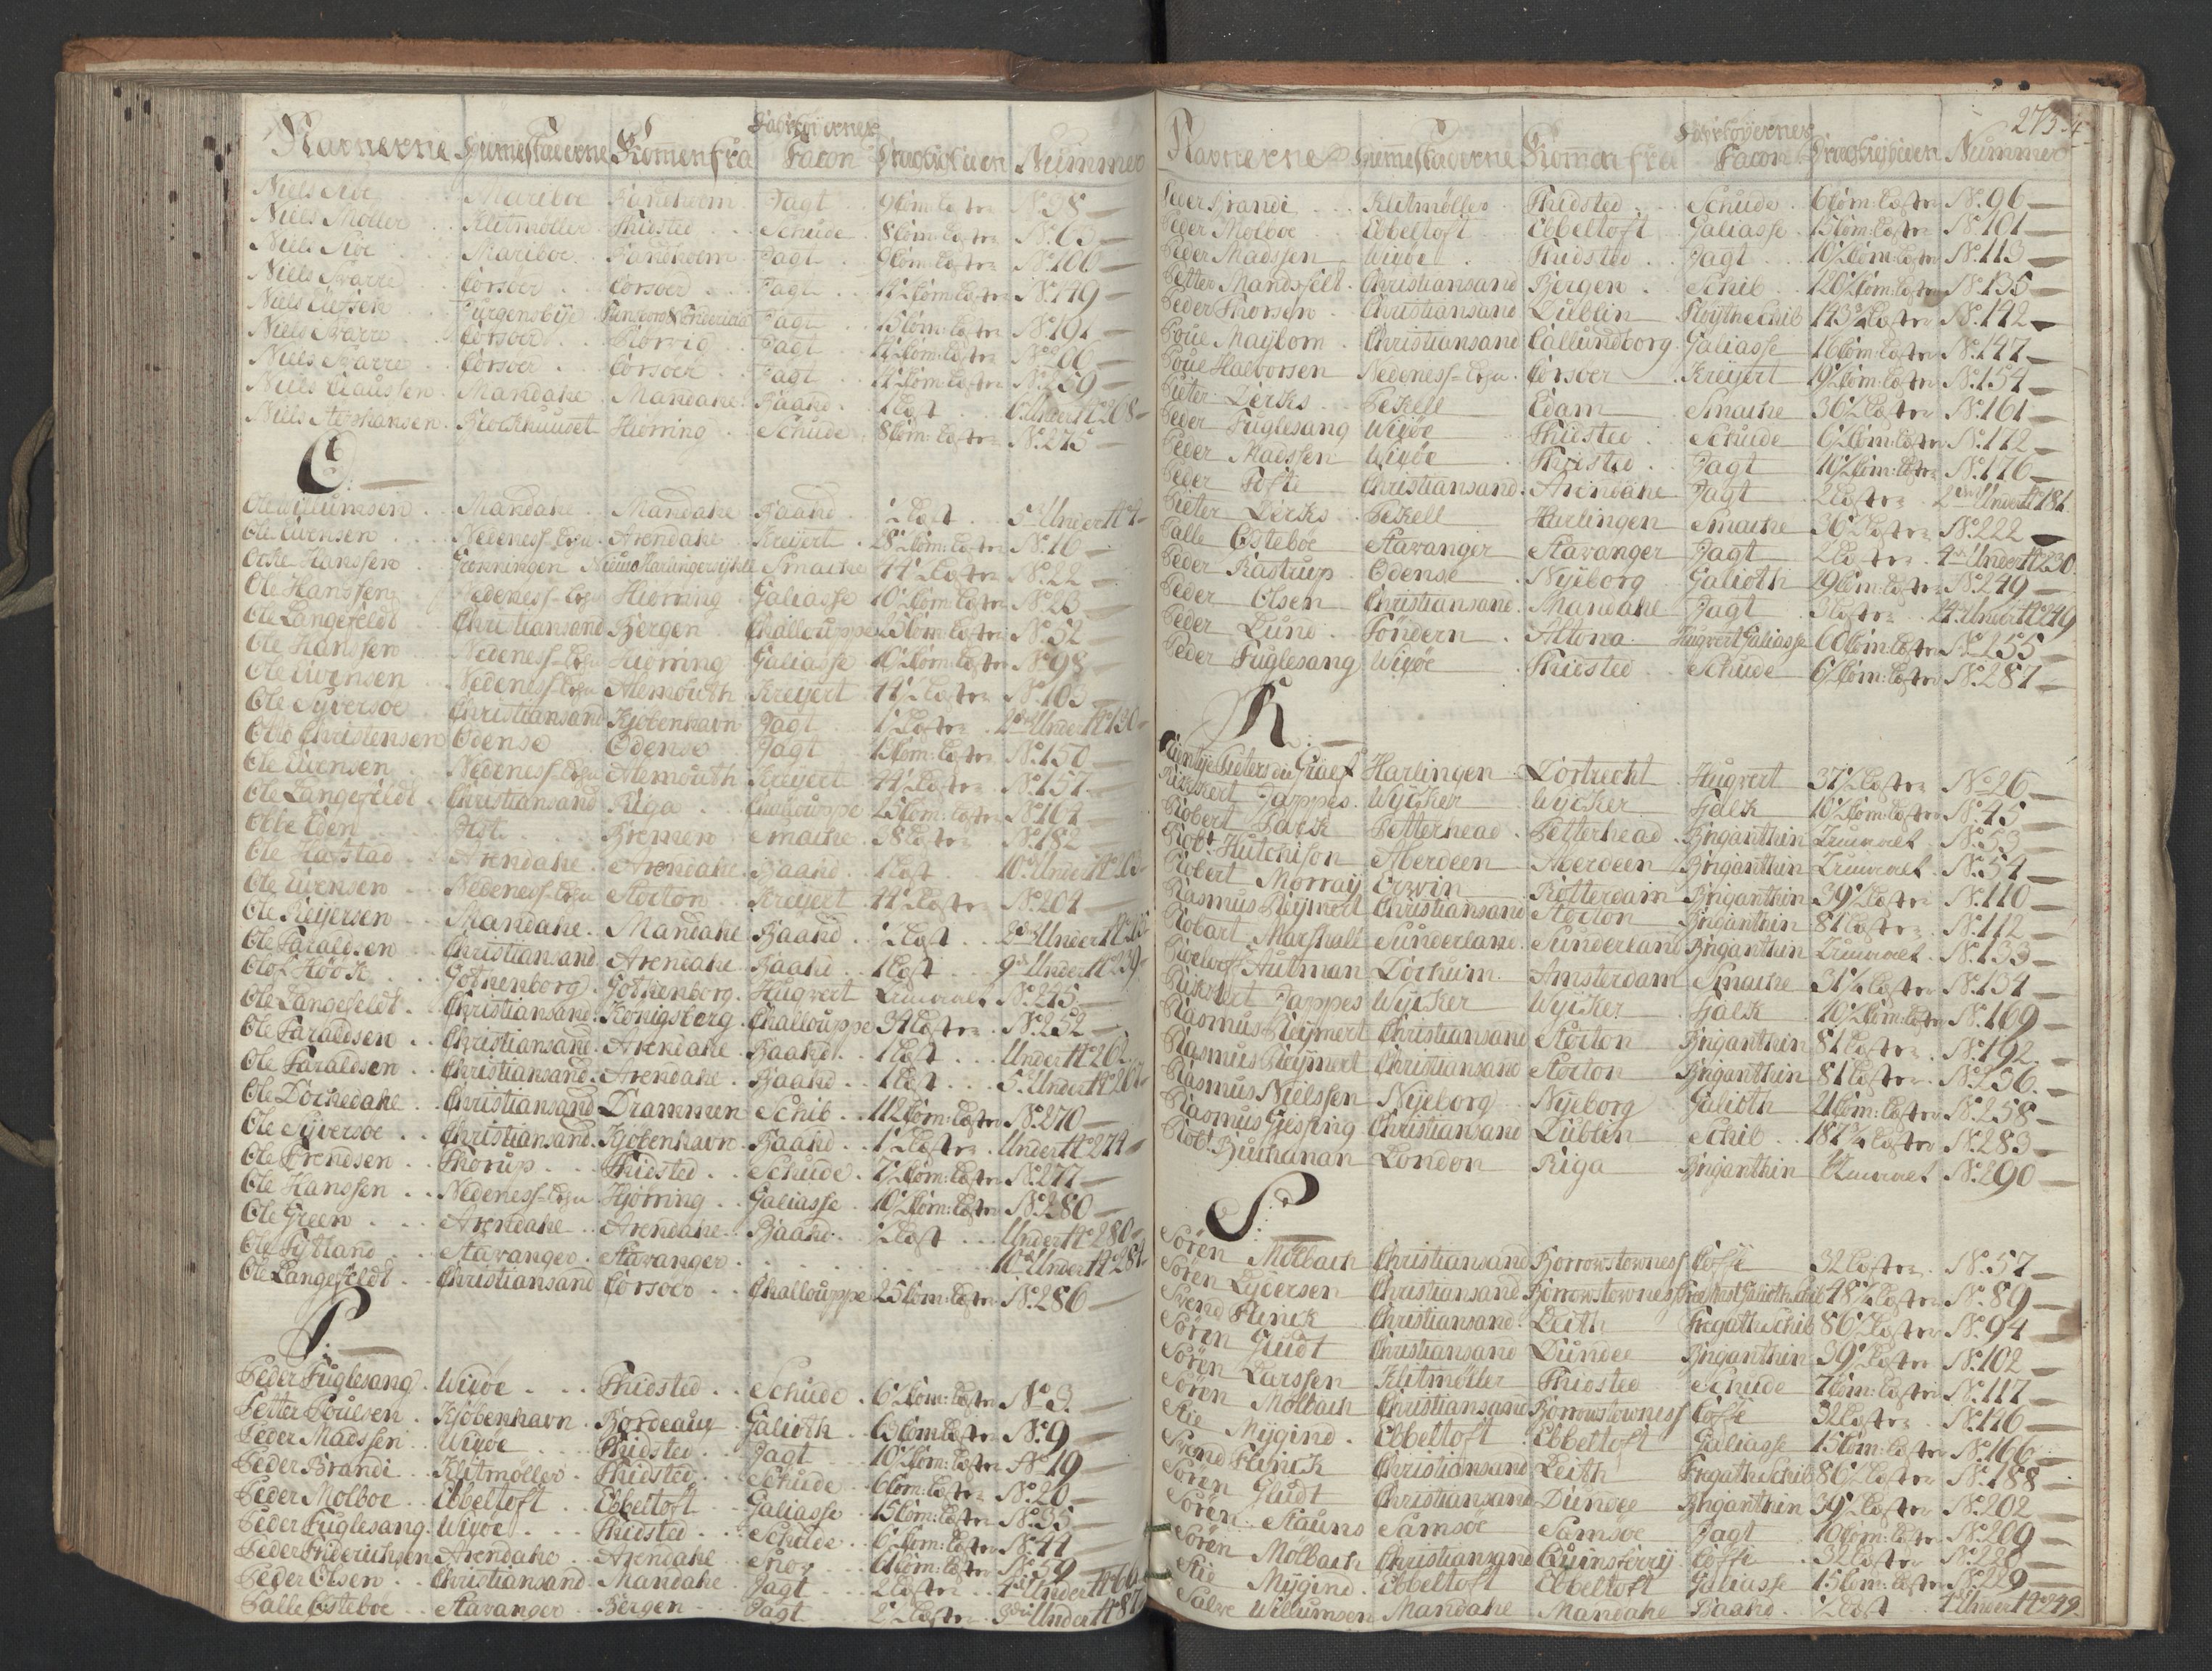 Navnerne Hiemstæderne Komen fra Fahrtöyernes Facon Drægtigheden Nummer
Niels Aroe Mariboe Bandholm Jagt 9 Com: Læster No. 38
Niels Möller Klitmöller Thisted Schude 8 Com: Læster No. 63
Niels Aroe Mariboe Bandholm Jagt 9 Com: Læster No. 106
Niels Svarre Corsoer Corsoer Jagt Com: Læster No. 149
Niels Jürgensbÿe Jagt Com: Læster No. 191
Niels Svarre Corsoer Jagt Com: Læster
Niels Svarre Corsoer Corsoer Jagt Com: Læster No. 259
Niels Claussen Mandahl Mandahl Baahd 1 Læst Under No. 268
Niels Stephansen Blockhuuset Hiörring Schude 8 Com: Læster No. 275
O.
Ole Willumsen Mandahl Mandahl Baahd ½ Læst
Ole Evensen Nedeness Arendahl Kreÿert Com: Læster No. 16
Hanssen Grönningen Smacke Læster No. 22
Ole Hanssen Nedeness Hiörring Galiasse 10½ Com: Læster No. 23
Ole Langefeldt Christiansand Bergen Challouppe 25 Com: Læster No. 52
Ole Hanssen Nedeness Hiörring Galiasse 10½ Com: Læster No. 98
Ole Evensen Nedeness Alemouth Kreÿert Læster No. 103
Ole Syversoe Christiansand Kjöbenhavn Jagt Læster Under No. 130
Otto Christensen Odense Odense Jagt Com: Læster No. 150
Ole Evensen Nedeness Alemouth Kreÿert Læster No. 157
Ole Langefeldt Christiansand Riga Challouppe 25 Com: Læster No. 164
Bremen Smacke 38 Læster No. 182
Ole Hafstad Arendahl Arendahl Baahd 1 Læst
Ole Evensen Nedeness Stocton Kreÿert Læster No. 204
Ole Reÿersen Mandahl Mandahl Baahd ½ Læst
Ole Taraldsen Christiansand Arendahl Baahd 1 Læst Under No. 239
Olof Höök Gothenborg Gothenborg Hugvert Læster No. 245
Ole Langefeldt Christiansand Königsberg Challouppe 34 Læster No. 252
Ole Taraldsen Christiansand Arendahl Baahd 1 Læst Under No. 262
Ole Taraldsen Christiansand Arendahl Baahd 1 Læst 5 Under No. 267
Ole Dockedahl Christiansand Drammen Schib 112 Com: Læster No. 270
Ole Syversoe Christiansand Kjöbenhavn Baahd 1½ Læster Under No. 274
Ole Frendsen Thorup Thisted Schude Com: Læster No. 277
Ole Hanssen Nedeness Hjörring Galiasse 10½ Com: Læster No. 280
Ole Green Arendahl Arendahl Baahd ½ Læst Under No. 280
Ole Stavanger Stavanger 10 Under No. 284
Ole Langefeldt Christiansand Corsoer Challouppe 25 Com: Læster No. 286
P.
Peder Fuglesang Wigöe Thisted Schude 6½ Com: Læster No. 3
Petter Poulsen Kjöbenhavn Bordeaux Galioth Com: Læster No. 9
Peder Madssen Wigöe Thisted Jagt 10½ Com: Læster No. 19
Peder Brandi Klitmöller Thisted Schude 6 Com: Læster No. 20
Peder Molboe Ebbeltoft Ebbeltoft Galiasse 15 Com: Læster No. 35
Peder Fuglesang Wigöe Thisted Schude 6½ Com: Læster No. 44
Peder Friderichsen Arendahl Arendahl Com: Læster No. 59
Peder Olsen Christiansand Mandahl Jagt 2 Læster Under No. 66
Palle Östeboe Stavanger Bergen Jagt 2 Læster Under No. 87
273
Navnerne Hiemstæderne Komen fra Fahrtöyernes Facon Drægtigheden Nummer
Peder Brandi Klitmöller Thisted Schude 6 Com: Læster No. 96
Peder Molboe Ebbeltoft Ebbeltoft Galiasse 15 Com: Læster No. 101
Peder Madssen Wigöe Thisted Jagt 10½ Com: Læster No. 113
Petter Mandsfelt Christiansand Bergen Schib 120 Com: Læster No. 135
Peder Thorsen Christiansand Dublin Fløÿthe Schib 143½ Læster No. 142
Poul Maÿbom Christiansand Callundborg Galiasse 16 Com: Læster No. 147
Poul Halvorsen Nedeness Corsoer Kreÿert 19½ Com: Læster No. 154
Pieter Dercks Pekell Edam Smacke 36½ Læster No. 161
Peder Fuglesang Wigöe Thisted Schude 6½ Com: Læster No. 172
Peder Madssen Wigöe Thisted Jagt 10½ Com: Læster No. 176
Peder Tofte Christiansand Arendahl Jagt 2 Læster 2 Under No. 181
Pieter Dercks Pekell Harlingen Smacke 36½ Læster No. 222
Palle Östeboe Stavanger Stavanger Jagt 2 Læster 4 Under No. 230
Peder Rastrup Odense Nÿeborg Galioth 19 Com: Læster No. 249
Peder Olsen Christiansand Mandahl Jagt 3 Læster Under No. 249
Peder Lund Töndern Altona Hugvert Galiasse 60 Com: Læster No. 255
Peder Fuglesang Wigöe Thisted Schude 6½ Com: Læster No. 287
R.
Pieters de Graef Harlingen Dortrecht Hugvert 37½ Læster No. 26
Rickkert Jappes Wÿcker Wÿcker Tjalk 10½ Com: Læster No. 45
Robert Petterhead Petterhead Briganthin No. 53
Robt. Hutchison Aberdeen Aberdeen Briganthin No. 54
Robert Morraÿ Erwin Rotterdam Briganthin 39½ Læster No. 110
Rasmus Reÿmert Christiansand Stocton Briganthin 81 Læster No. 112
Robart Marshall Sunderland Sunderland Briganthin No. 133
Roelof Hutman Dockum Amsterdam Smacke 31½ Læster No. 134
Rickkert Jappes Wÿcker Wÿcker Tjalk 10½ Com: Læster No. 169
Rasmus Reÿmert Christiansand Stocton Briganthin 81 Læster No. 192
Rasmus Reÿmert Christiansand Stocton Briganthin 81 Læster No. 236
Rasmus Nielssen Nÿeborg Nÿeborg Galioth 21 Com: Læster No. 258
Rasmus Giesping Christiansand Dublin Schib 187½ Læster No. 283
Robt. Buchanan London Riga Briganthin No. 290
S.
Sören Molbach Christiansand Borrowstowness Coffe 32 Læster No. 57
Sören Christiansand Borrowstowness 48½ Læster No. 89
Svend Flinck Christiansand Leith Fregath Schib 86½ Læster No. 94
Sören Gludt Christiansand Dundee Briganthin 39½ Læster No. 102
Sören Larssen Klitmöller Thisted Schude 7 Com: Læster No. 117
Sören Molbach Christiansand Borrowstowness Coffe 32 Læster No. 146
Stie Mÿgind Ebbeltoft Ebbeltoft Galiasse 15 Com: Læster No. 166
Svend Flinck Christiansand Leith Fregath Schib 86½ Læster No. 188
Sören Gludt Christiansand Dundee Briganthin 39½ Læster No. 202
Sören Stauns Samsöe Samsöe Jagt 10 Com: Læster No. 209
Sören Molbach Christiansand Quinsferrÿ Coffe 32 Læster No. 220
Stie Mÿgind Ebbeltoft Ebbeltoft Galiasse 15 Com: Læster No. 229
Salve Willumsen Mandahl Mandahl Baahd ½ Læst Under No. 249